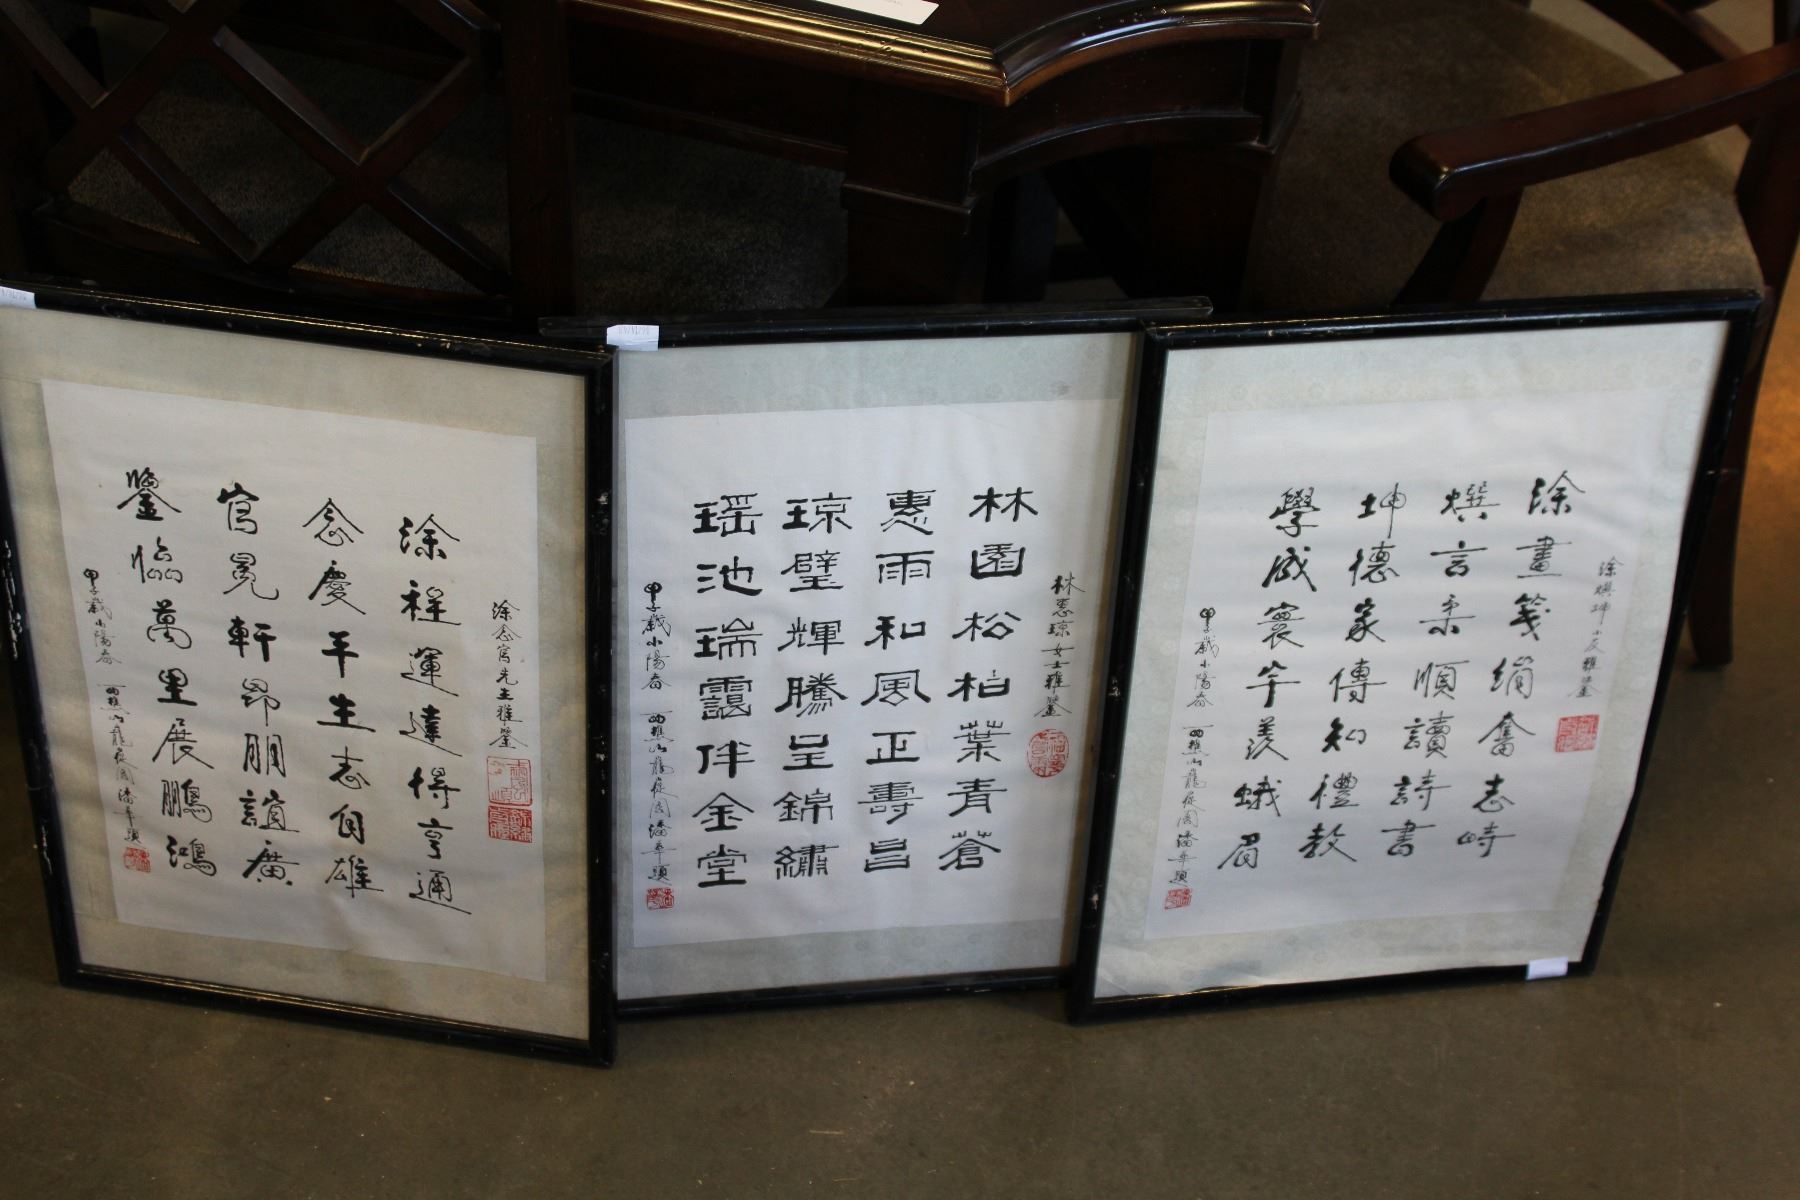 涂念寯先生雅鑒
涂程運達得亨通
念慶平生志自雄
寯冕軒昂朋誼廣
鑒臨萬里展鵬鴻
甲子歲小陽春
西樵山龍從周潘平題
林惠琼女士雅鑒
林園松柏葉青蒼
惠雨和風正壽昌
琼璧輝騰呈錦繡
瑶池瑞靄伴金堂
甲子歲小陽春
西樵山龍從周潘平題
涂熼坤小友雅鑒
涂畫箋絹奮志時
熼言柔順讀詩書
坤德家傳知禮教
學成寰宇羨蛾眉
甲子歲小陽春
西樵山龍從周潘平題